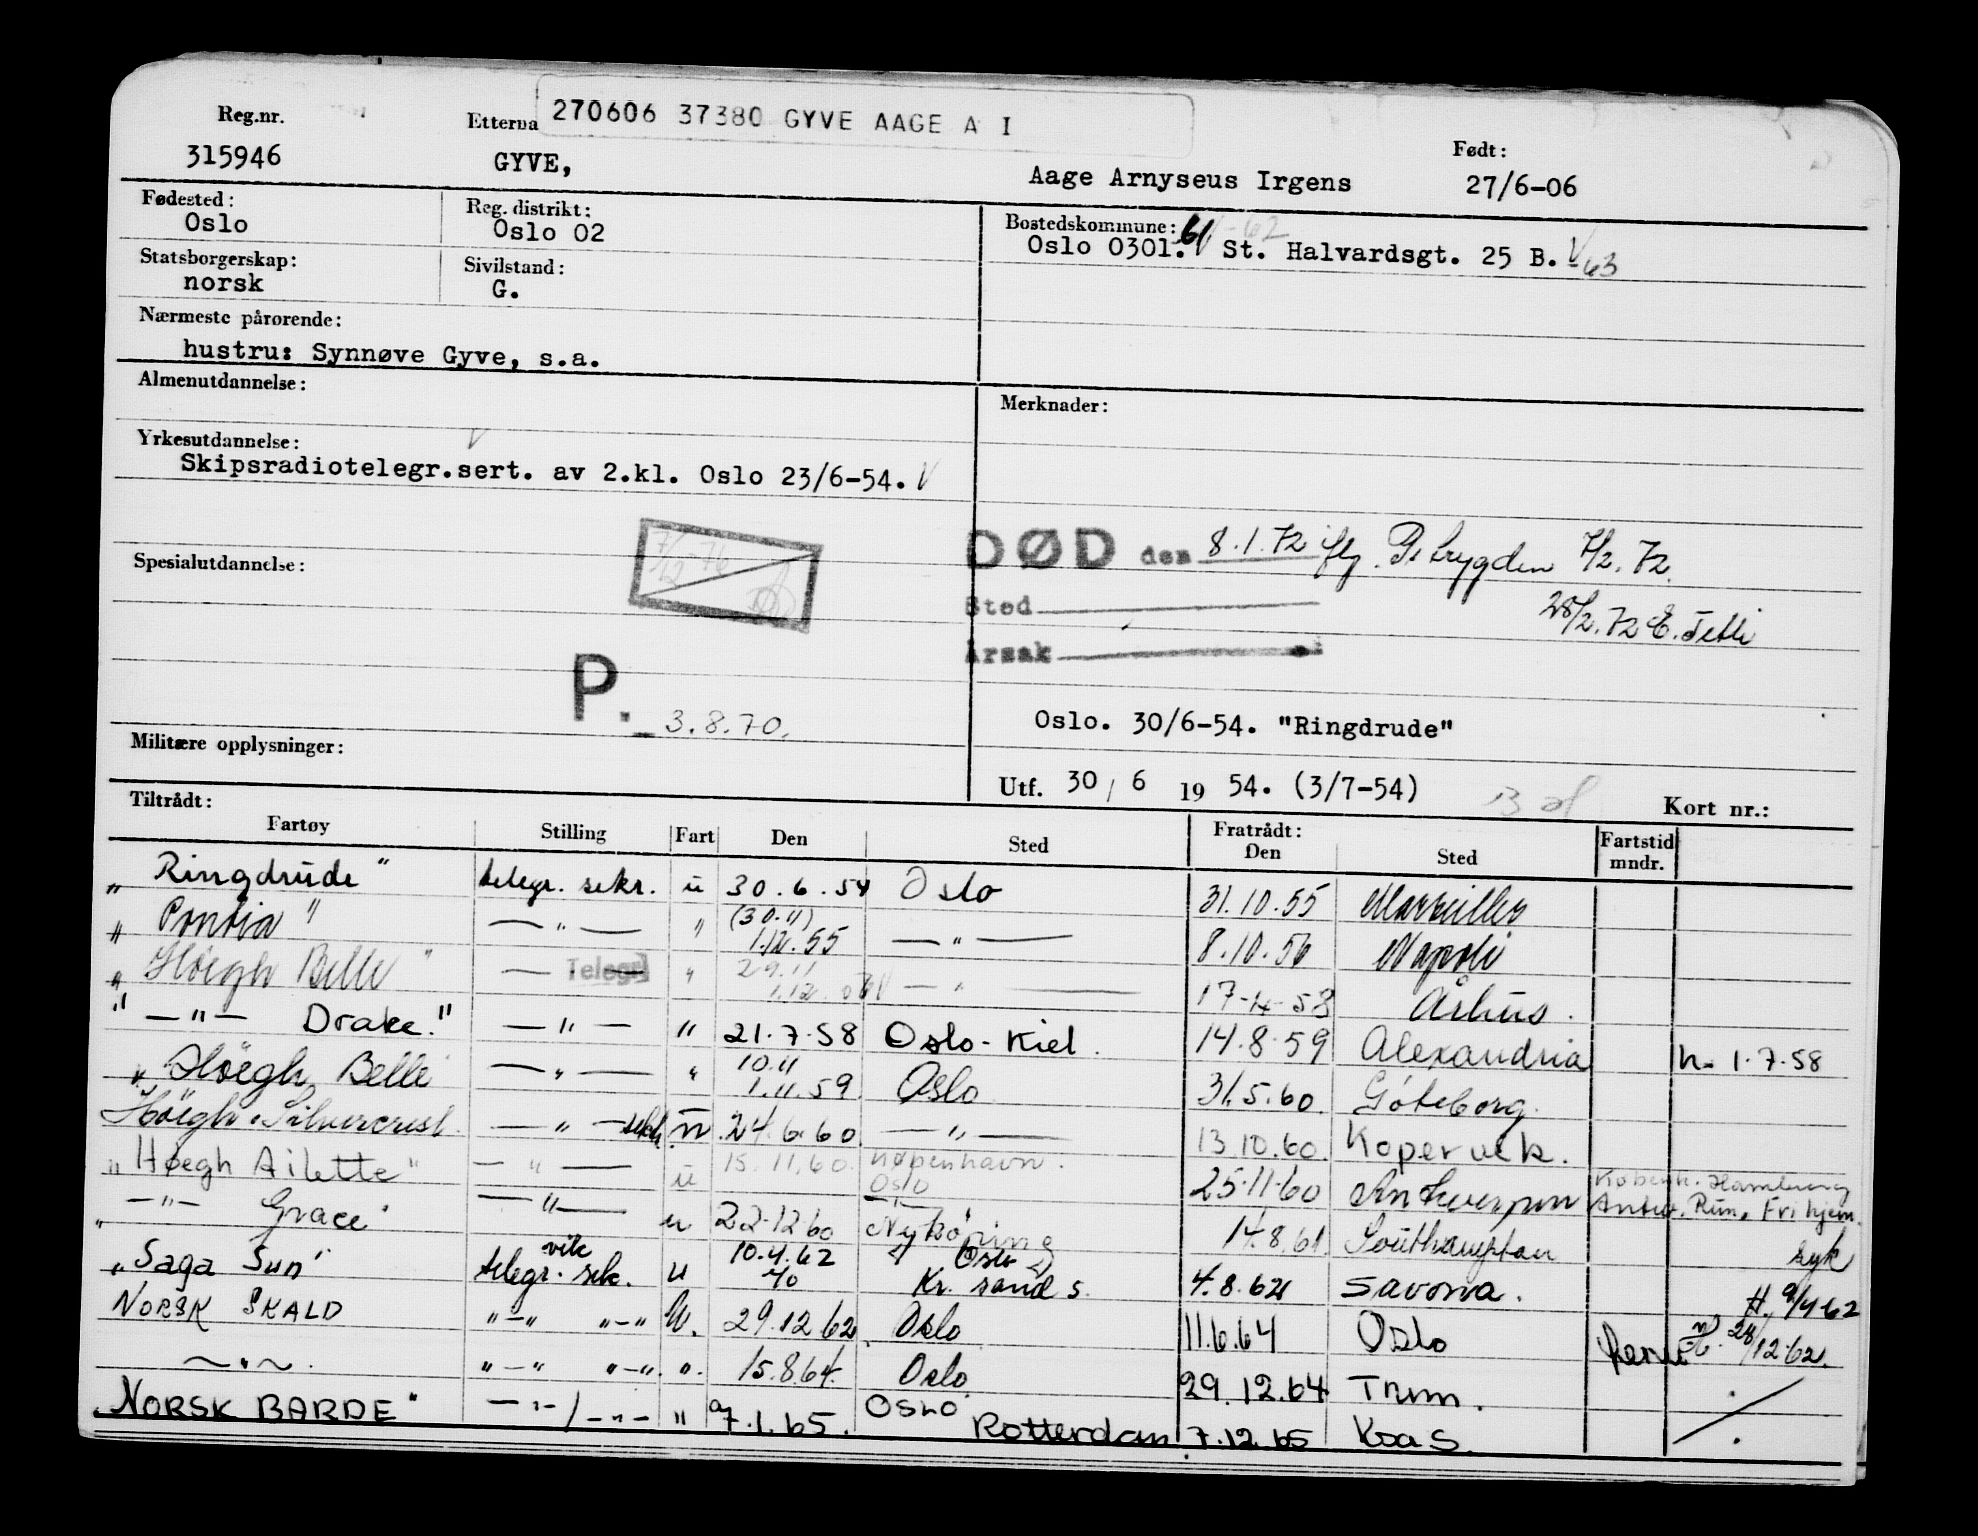 270606 37380 GYVE AAGE A I
Reg.nr. Etterna Født:
315946 GYVE, Aage Arnyseus Irgens 27/6-06
Fødested: Reg. distrikt: Bostedskommune:
Oslo Oslo 02 Oslo 0301. 61 -62 St. Halvardsgt. 25 B. V 63
Statsborgerskap: Sivilstand:
norsk G.
Nærmeste pårørende:
hustru: Synnøve Gyve, s.a.
Almenutdannelse: Merknader:
Yrkesutdannelse:
Skipsradiotelegr.sert. av 2.kl. Oslo 23/6-54. V
DØD den 8.1.72 iflg. 7/2.72
Spesialutdannelse:
Sted 28/2.72 E.
Årsak
P. 3.8.70.
Oslo. 30/6-54. "Ringdrude"
Militære opplysninger:
Utf. 30/6 1954. (3/7-54) Kort nr.:
Tiltrådt: Fratrådt: Fartstid
Fartøy Stilling Fart Den Sted Den Sted mndr.
"Ringdrude" telegr. sekr. u 30.6.54 Oslo 31.10.55 Marseilles
"Pontia" —"— " (30.11) 1.12.55 —"— 8.10.56 Napoli
"Höegh Belle" — Telegr. " 29.11 1.12. —"— 17-4-58 Århus.
" —"— Drake." —"— " 21.7.58 Oslo-Kiel. 14.8.59 Alexandria h. 1.7.58
"Höegh Belle —"— " 10.11 1.11.59 Oslo 31.5.60. Göteborg.
Höegh Silvercrest —"— sekr u 24.6.60 —"— 13.10.60. Kopervik.
"Høegh Ailette" —"— u 15.11.60. København. Oslo 25-11-60 Antwerpen Københ. Hamburg
" —"— Grace" —"— u 22.12.60 Nykøbing 14.8.61 Southampton Antw. Fri hjem. syk
"Saga Sun" vik telegr. sek. u 10.4.62 Oslo Kr. sand S. 4.8.62 Savona. H. 9/4-62
NORSK SKALD "-" "-" U. 29.12.62 Oslo 11.6.64 Oslo 28/12-62.
—"—. "-" "-". ". 15.8.64. Oslo 29.12.64 Trhm.
"NORSK BARDE" —"—/—"— " 7.1.65. OSLO Rotterdam 7.12.65 KraS.